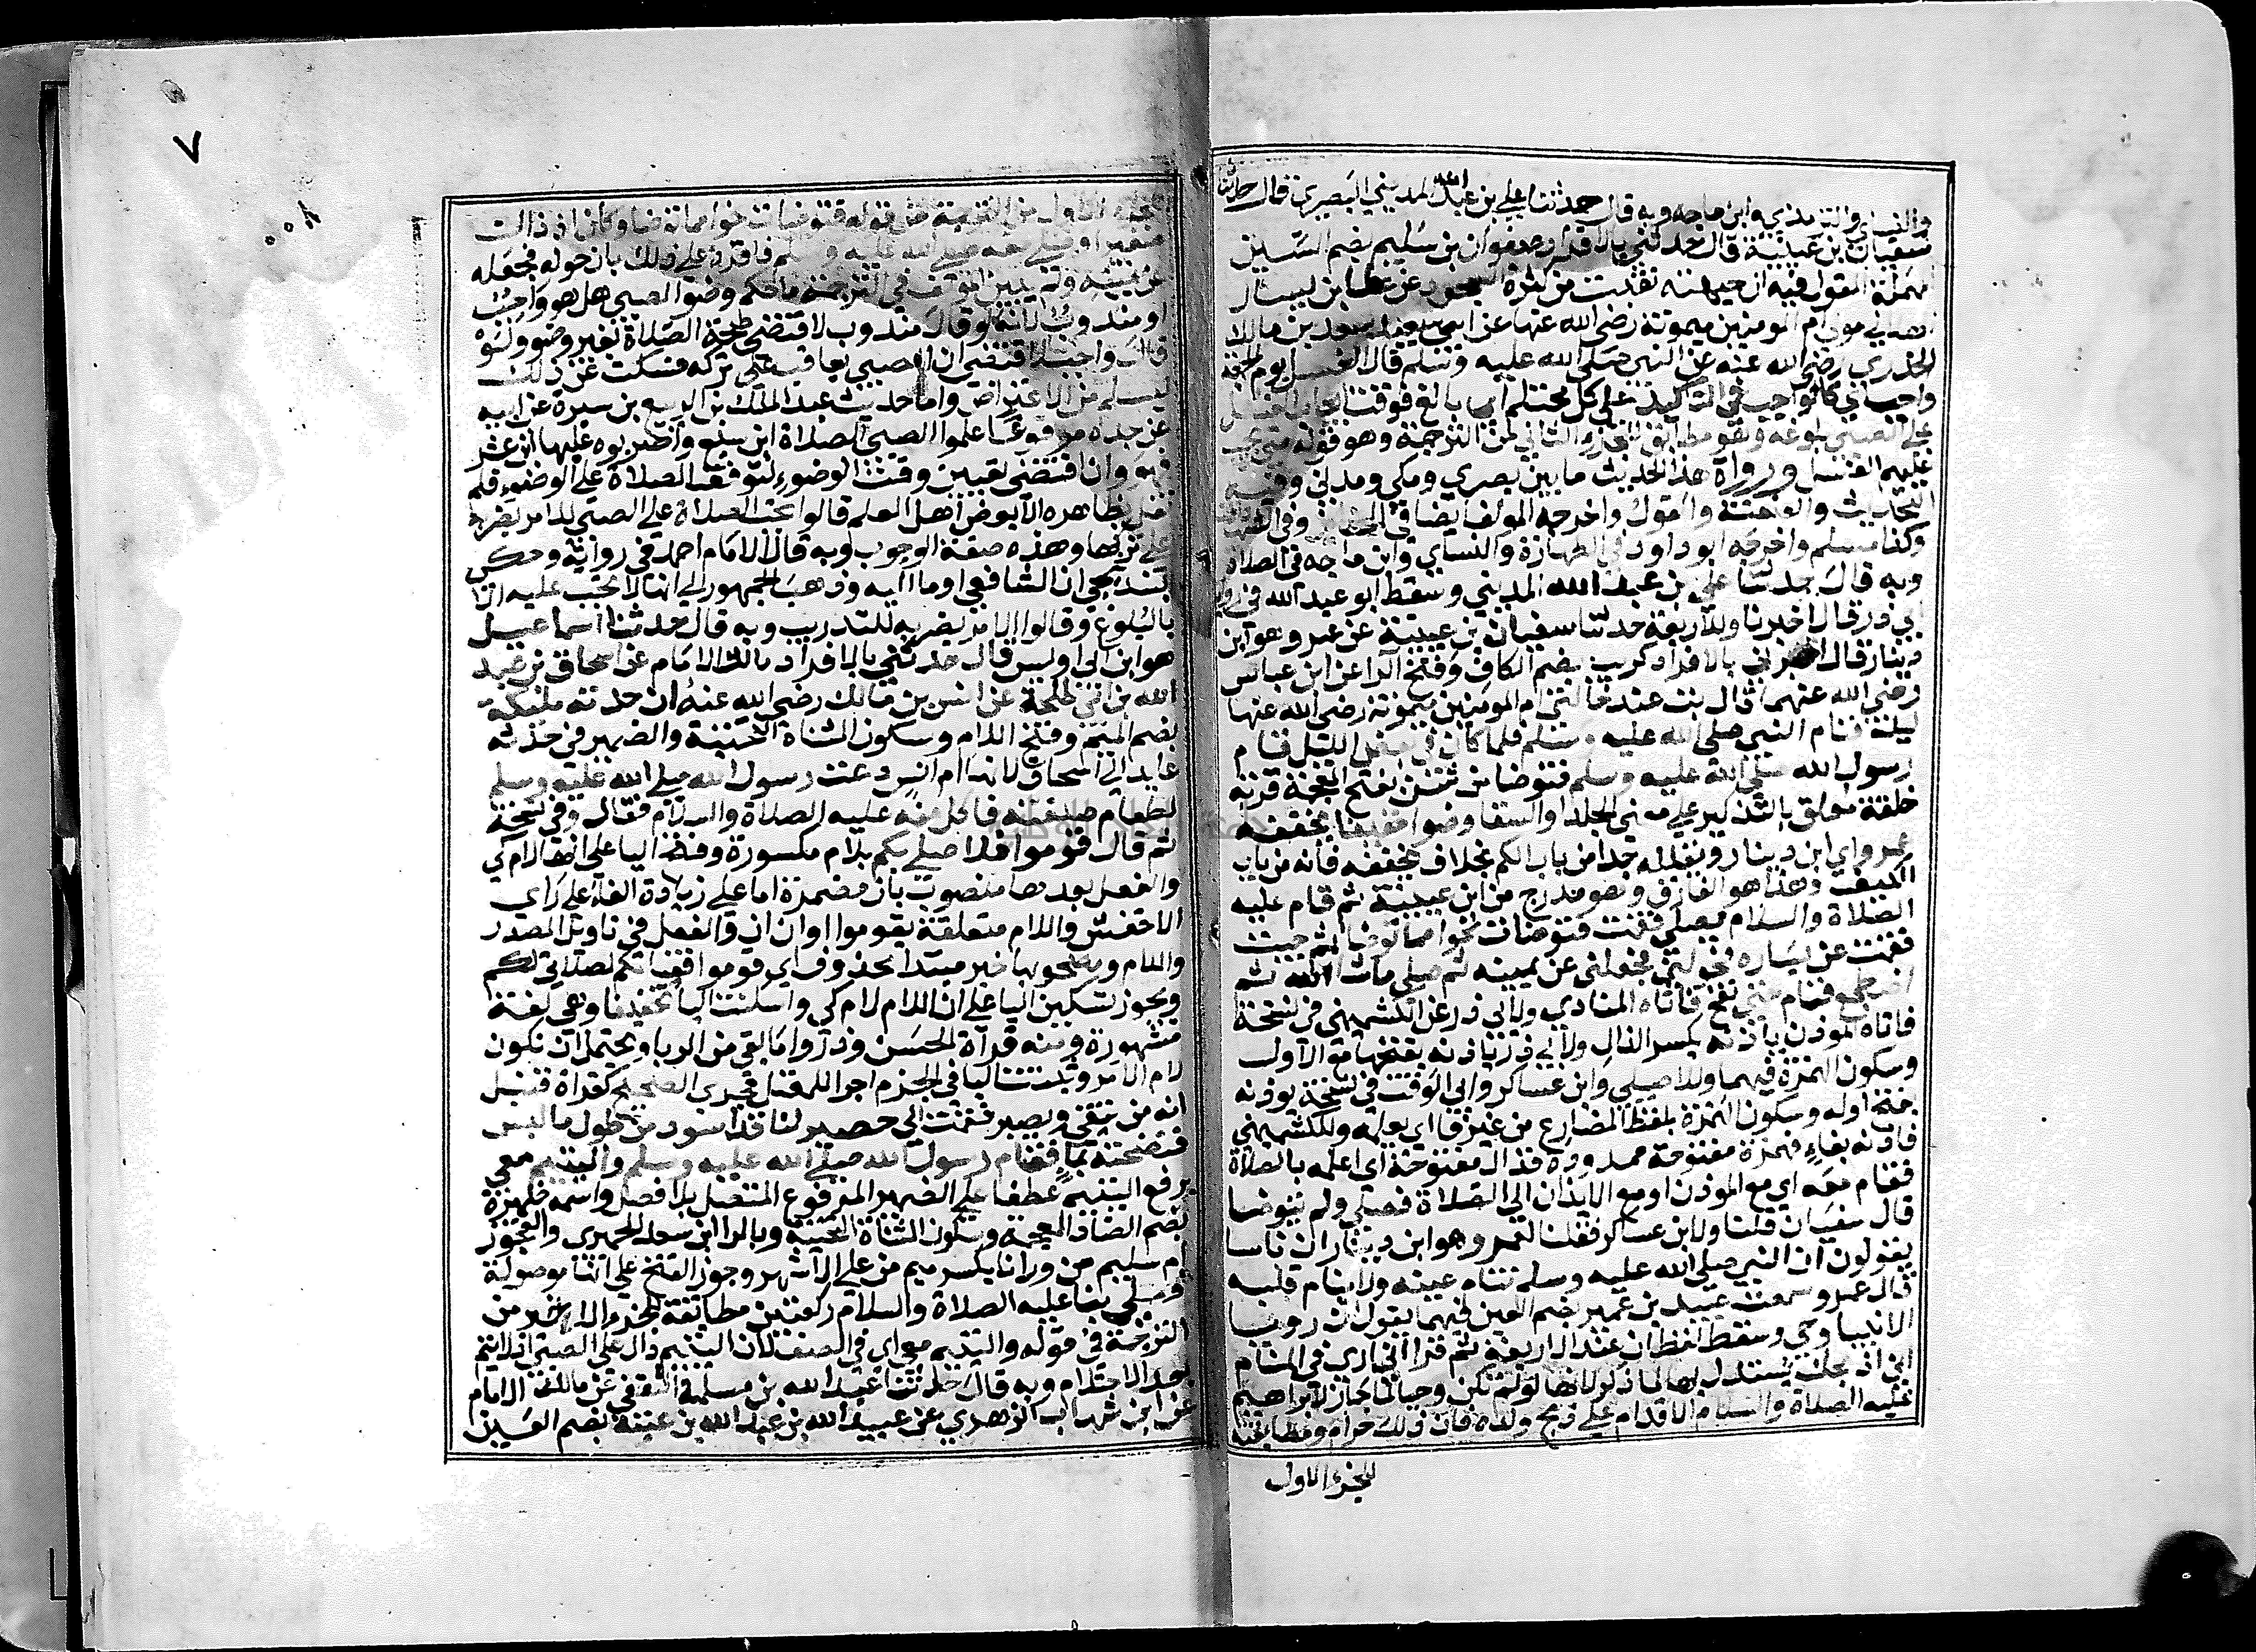 والنساي والترمذي وابن ماجه وبه قال حدثنا علي بن عبد الله المديني البصري قال حدثنا
سفيان بن عيينة قال حدثني بالافراد صفوان بن سليم بضم السين
المهملة المقول فيه ان جبهته نقبت من كثرة السجود عن عطا بن يسار
الهلالي مولى ام المومنين ميمونة رضي الله عنها عن ابي سعيد سعد بن مالك
الخدري رضي الله عنه عن النبي صلى الله عليه وسلم قال الغسل يوم الجمعة
واجب اي كالواجب في التاكيد على كل محتلم اي بالغ فوقت ايجاب الغسل
على الصبي بلوغه وهو مطابق للجزء الثاني من الترجمة وهو قوله متى يجب
عليهم الغسل ورواة هذا الحديث ما بين بصري ومكي ومدني وفيه
التحديث والعنعنة والقول واخرجه المولف ايضا في وفي
وكذا مسلم واخرجه ابو داود في الطهارة والنساي وابن ماجه في الصلاة
وبه قال حدثنا علي بن عبد الله المديني وسقط ابو عبد الله في
ابي ذر قال اخبرنا وللاربعة حدثنا سفيان بن عيينة عن عمرو هو ابن
دينار قال اخبرني بالافراد كريب بضم الكاف وفتح الرا عن ابن عباس
رضي الله عنهما قال بت عند خالتي ام المومنين ميمونة رضي الله عنها
ليلة فنام النبي صلى الله عليه وسلم فلما كان في بعض الليل قام
رسول الله صلى الله عليه وسلم فتوضا من شن بفتح المعجمة قربة
خلقة معلق بالتذكير على معنى الجلد او السقا وضوا خفيفا يخففه
عمرو اي ابن دينار ويقلله جدا من باب الكم بخلاف يخففه فانه من باب
الكيف وهذا هو الفارق وهو مدرج من ابن عيينة ثم قام عليه
الصلاة والسلام يصلي فقمت فتوضات نحوا مما توضا ثم جيت
فقمت عن يساره فحولني فجعلني عن يمينه ثم صلى ما شا الله ثم
اضطجع فنام حتى نفخ فاتاه المنادي ولابي ذر عن الكشميهني في نسخة
فاتاه الموذن ياذنه بكسر الذال ولابي ذر ياذنه بفتحها مع الاول
وسكون الهمزة فيهما وللاصيلي وابن عساكر وابي الوقت في نسخة يوذنه
بضم اوله وسكون الهمزة بلفظ المضارع من غير فا اي يعلمه وللكشميهني
فاذنه بفاء فهمزة مفتوحة ممدودة فذال مفتوحة اي اعلمه بالصلاة
فقام معه اي مع الموذن او مع الايذان الى الصلاة فصلى ولم يتوضا
قال سفيان قلنا ولابن عساكر فقلنا لعمرو هو ابن دينار ان ناسا
يقولون ان النبي صلى الله عليه وسلم تنام عينه ولا ينام قلبه
قال عمرو سمعت عبيد بن عمير بضم العين فيهما يقول ان رويا
الانبيا وحي وسقط لفظ ان عند الاربعة ثم قرا اني ارى في المنام
اني اذبحك يستدل بها لما ذكر لانها لو لم تكن وحيا لما جاز لابراهيم
عليه الصلاة والسلام الاقدام على ذبح ولده فان ذلك حرام ومطابقة
للجزء الاول
٧
الجزء الاول من الترجمة من قوله فتوضات نحوا مما توضا وكان اذ ذاك
صغيرا وصلى معه صلى الله عليه وسلم فاقره على ذلك بان حوله فجعله
عن يمينه ولم يبين المولف في الترجمة ما حكم وضو الصبي هل هو واجب
او مندوب لانه لو قال مندوب لاقتضى صحة الصلاة بغير وضو ولو
قال واجب لاقتضى ان الصبي يعاقب على تركه فسكت عن ذلك
ليسلم من الاعتراض واما حديث عبد الملك بن الربيع بن سبرة عن ابيه
عن جده مرفوعا علموا الصبي الصلاة ابن سبع واضربوه عليها ابن عشر
فهو وان اقتضى تعيين وقت الوضوء لتوقف الصلاة على الوضوء فلم
يقل بظاهره الا بعض اهل العلم قالوا تجب الصلاة على الصبي للامر بضربه
على تركها وهذه صفة الوجوب وبه قال الامام احمد في رواية وحكى
البندنيجي ان الشافعي اوما اليه وذهب الجمهور الى انها لا تجب عليه الا
بالبلوغ وقالوا الامر بضربه للتدريب وبه قال حدثنا اسماعيل
هو ابن ابي اويس قال حدثني بالافراد مالك الامام عن اسحاق بن عبد
الله بن ابي طلحة عن انس بن مالك رضي الله عنه ان جدته مليكة
بضم الميم وفتح اللام وسكون المثناة التحتية والضمير في جدته
عايد الى اسحاق لانها ام انس دعت رسول الله صلى الله عليه وسلم
لطعام صنعته فاكل منه عليه الصلاة والسلام فقال وفي نسخة
ثم قال قوموا فلاصلي بكم بلام مكسورة وفتح اليا على انها لام كي
والفعل بعدها منصوب بان مضمرة اما على زيادة الفا على راي
الاخفش واللام متعلقة بقوموا او ان ان والفعل في تاويل المصدر
واللام ومصحوبها خبر مبتدا محذوف اي قوموا فقيامكم لصلاتي لكم
ويجوز تسكين اليا على ان اللام لام كي واسكنت اليا تخفيفا وهي لغة
مشهورة ومنه قراة الحسن وذروا ما بقي من الربا ويحتمل ان تكون
لام الامر وثبتت اليا في الجزم اجرا للمعتل مجرى الصحيح كقراة قنبل
انه من يتقي ويصبر فقمت الى حصير لنا قد اسود من طول ما لبس
فنضحته بما فقام رسول الله صلى الله عليه وسلم واليتيم معي
برفع اليتيم عطفا على الضمير المرفوع المتصل بلا فصل واسمه ضميرة
بضم الضاد المعجمة وسكون المثناة التحتية وبالرا ابن سعد الحميري والعجوز
ام سليم من ورانا بكسر ميم من على الاشهر وجوز الفتح على انها موصولة
فصلى بنا عليه الصلاة والسلام ركعتين مطابقة للجزء الاخير من
الترجمة في قوله واليتيم معي اي في الصف لان اليتيم دال على الصبي اذ لا يتم
بعد الاحتلام وبه قال حدثنا عبد الله بن مسلمة القعنبي عن مالك الامام
عن ابن شهاب الزهري عن عبيد الله بن عبد الله بن عتبة بضم العين